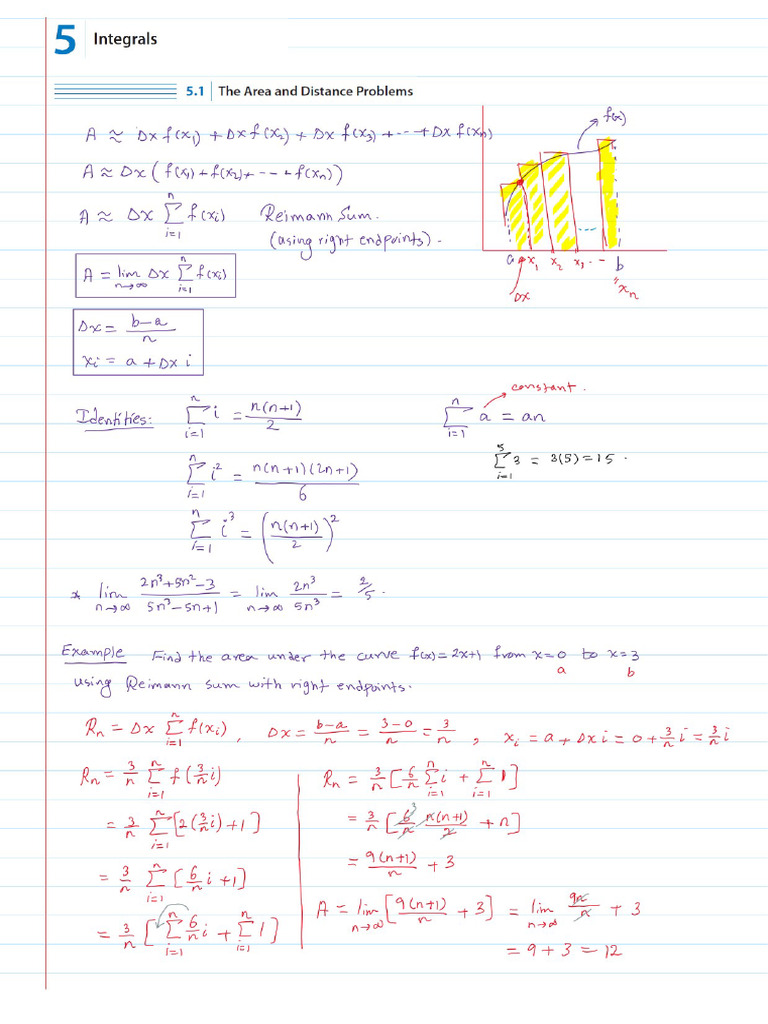 5 Integrals
5.1 The Area and Distance Problems
A ≈ Δx f(x₁) + Δx f(x₂) + Δx f(x₃) + --- + Δx f(xₙ)
A ≈ Δx ( f(x₁) + f(x₂) + --- + f(xₙ) )
A ≈ Δx Σ_{i=1}^{n} f(xᵢ) Reimann Sum.
(using right endpoints).
A = lim_{n→∞} Δx Σ_{i=1}^{n} f(xᵢ)
Δx = (b-a)/n
xᵢ = a + Δx i
f(x)
a x₁ x₂ x₃ -- b
Δx
" xₙ
Identities: Σ_{i=1}^{n} i = n(n+1)/2
Σ_{i=1}^{n} i² = n(n+1)(2n+1)/6
Σ_{i=1}^{n} i³ = (n(n+1)/2)²
constant.
Σ_{i=1}^{n} a = an
Σ_{i=1}^{5} 3 = 3(5) = 15.
* lim_{n→∞} (2n³+5n²-3)/(5n³-5n+1) = lim_{n→∞} 2n³/5n³ = 2/5.
Example Find the area under the curve f(x) = 2x+1 from x=0 to x=3
a b
using Reimann sum with right endpoints.
Rₙ = Δx Σ_{i=1}^{n} f(xᵢ), Δx = (b-a)/n = (3-0)/n = 3/n, xᵢ = a + Δx i = 0 + 3/n i = 3/n i
Rₙ = 3/n Σ_{i=1}^{n} f(3/n i)
= 3/n Σ_{i=1}^{n} [2(3/n i) + 1]
= 3/n Σ_{i=1}^{n} [6/n i + 1]
= 3/n [Σ_{i=1}^{n} 6/n i + Σ_{i=1}^{n} 1]
Rₙ = 3/n [6/n Σ_{i=1}^{n} i + Σ_{i=1}^{n} 1]
3
= 3/n [6/n n(n+1)/2 + n]
= 9(n+1)/n + 3
A = lim_{n→∞} [9(n+1)/n + 3] = lim_{n→∞} 9n/n + 3
= 9 + 3 = 12